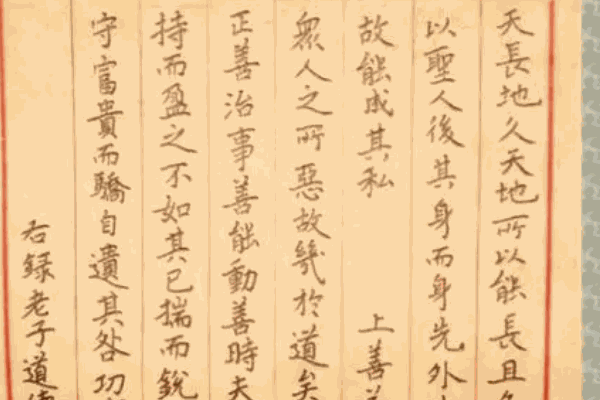 天長地久天地所以能長且
以聖人後其身而身先外
故能成其私 上善
衆人之所惡故幾於道矣
正善治事善能動善時夫
持而盈之不如其已揣而銳
守富貴而驕自遺其咎功
右録老子道德